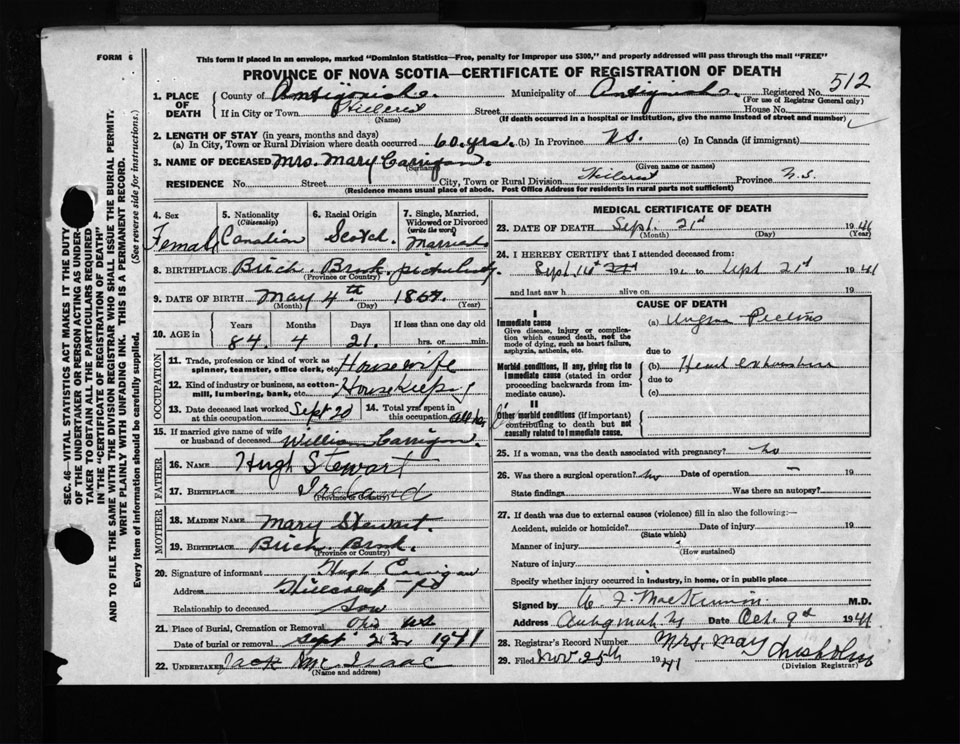 FORM 6
This form if placed in an envelope, marked "Dominion Statistics—Free, penalty for improper use $300," and properly addressed will pass through the mail "FREE"
PROVINCE OF NOVA SCOTIA—CERTIFICATE OF REGISTRATION OF DEATH
512
1. PLACE OF DEATH
County of Antigonish. Municipality of Antigonish. Registered No.
(For use of Registrar General only)
If in City or Town Hillcrest Street House No.
(Name) (If death occurred in a hospital or institution, give the name instead of street and number)
2. LENGTH OF STAY (in years, months and days)
(a) In City, Town or Rural Division where death occurred 60 yrs. (b) In Province NS. (c) In Canada (if immigrant)
3. NAME OF DECEASED Mrs. Mary Carrigan.
(Surname) (Given name or names)
RESIDENCE No. Street City, Town or Rural Division Hillcrest Province N.S.
(Residence means usual place of abode. Post Office Address for residents in rural parts not sufficient)
4. Sex
Female
5. Nationality
(Citizenship)
Canadian
6. Racial Origin
Scotch.
7. Single, Married, Widowed or Divorced
(write the word)
Married
8. BIRTHPLACE Birch Brook,
(Province or Country)
9. DATE OF BIRTH May 4th 1857.
(Month) (Day) (Year)
10. AGE in
Years Months Days If less than one day old
84. 4 21. hrs. or min.
OCCUPATION
11. Trade, profession or kind of work as spinner, teamster, office clerk, etc. Housewife
12. Kind of industry or business, as cotton-mill, lumbering, bank, etc. Housekeeping
13. Date deceased last worked at this occupation Sept 20
14. Total yrs. spent in this occupation
15. If married give name of wife or husband of deceased William Carrigan.
FATHER
16. NAME Hugh Stewart
17. BIRTHPLACE Ireland
(Province or Country)
MOTHER
18. MAIDEN NAME Mary Stewart.
19. BIRTHPLACE Birch Brook.
(Province or Country)
20. Signature of informant Hugh Carrigan
Address Hillcrest
Relationship to deceased Son
21. Place of Burial, Cremation or Removal
Date of burial or removal Sept 23, 1941
22. UNDERTAKER Jack Mc Isaac
(Name and address)
MEDICAL CERTIFICATE OF DEATH
23. DATE OF DEATH Sept. 21st 1941
(Month) (Day) (Year)
24. I HEREBY CERTIFY that I attended deceased from:
Sept 14th 19 to Sept 21st 1941
and last saw h alive on 19
CAUSE OF DEATH
I
Immediate cause
Give disease, injury or complication which caused death, not the mode of dying, such as heart failure, asphyxia, asthenia, etc.
(a) Angina Pectoris
due to
Morbid conditions, if any, giving rise to immediate cause (stated in order proceeding backwards from immediate).
(b) Heart exhaustion
due to
(c)
II
Other morbid conditions (if important) contributing to death but not causally related to immediate cause.
25. If a woman, was the death associated with pregnancy? no
26. Was there a surgical operation? no Date of operation — 19
State findings Was there an autopsy?
27. If death was due to external causes (violence) fill in also the following:—
Accident, suicide or homicide? Date of injury 19
(State which)
Manner of injury
(How sustained)
Nature of injury
Specify whether injury occurred in industry, in home, or in public place
Signed by MacKinnon M.D.
Address Antigonish Date Oct. 9th 1941
28. Registrar's Record Number Mrs. May Chisholm
29. Filed Nov 25th 1941
(Division Registrar)
SEC. 46—VITAL STATISTICS ACT MAKES IT THE DUTY
OF THE UNDERTAKER OR PERSON ACTING AS UNDER-
TAKER TO OBTAIN ALL THE PARTICULARS REQUIRED
IN THE "CERTIFICATE OF REGISTRATION OF DEATH"
AND TO FILE THE SAME WITH THE DIVISION REGISTRAR WHO SHALL ISSUE THE BURIAL PERMIT.
WRITE PLAINLY WITH UNFADING INK. THIS IS A PERMANENT RECORD.
Every item of information should be carefully supplied. (See reverse side for instructions.)